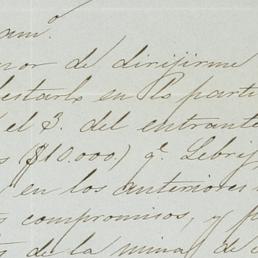 am.º
nor de dirijirme
estarlo en lo parti
el 3. del entrante
s ($10.000,) q.e Lebrij
en los anteriores
s compromisos, y p
s de la mina de